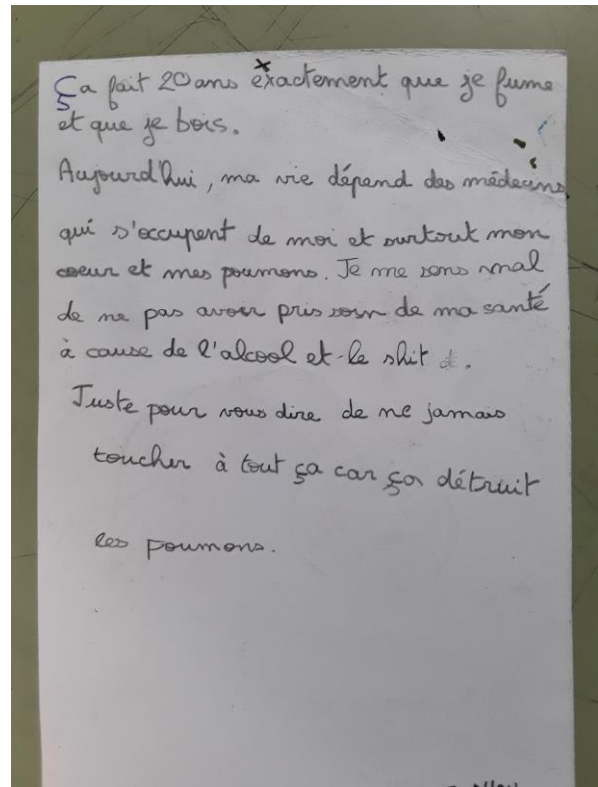 Ça fait 20 ans exactement que je fume
et que je bois.
Aujourd'hui, ma vie dépend des médecins
qui s'occupent de moi et surtout mon
coeur et mes poumons. Je me sens mal
de ne pas avoir pris soin de ma santé
à cause de l'alcool et le shit.
Juste pour vous dire de ne jamais
toucher à tout ça car ça détruit
les poumons.